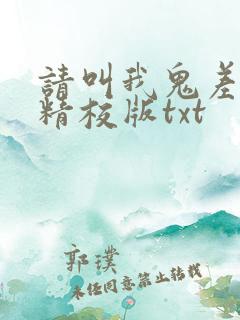 請叫我鬼差
精校版txt
郭璞
未经同意禁止转载